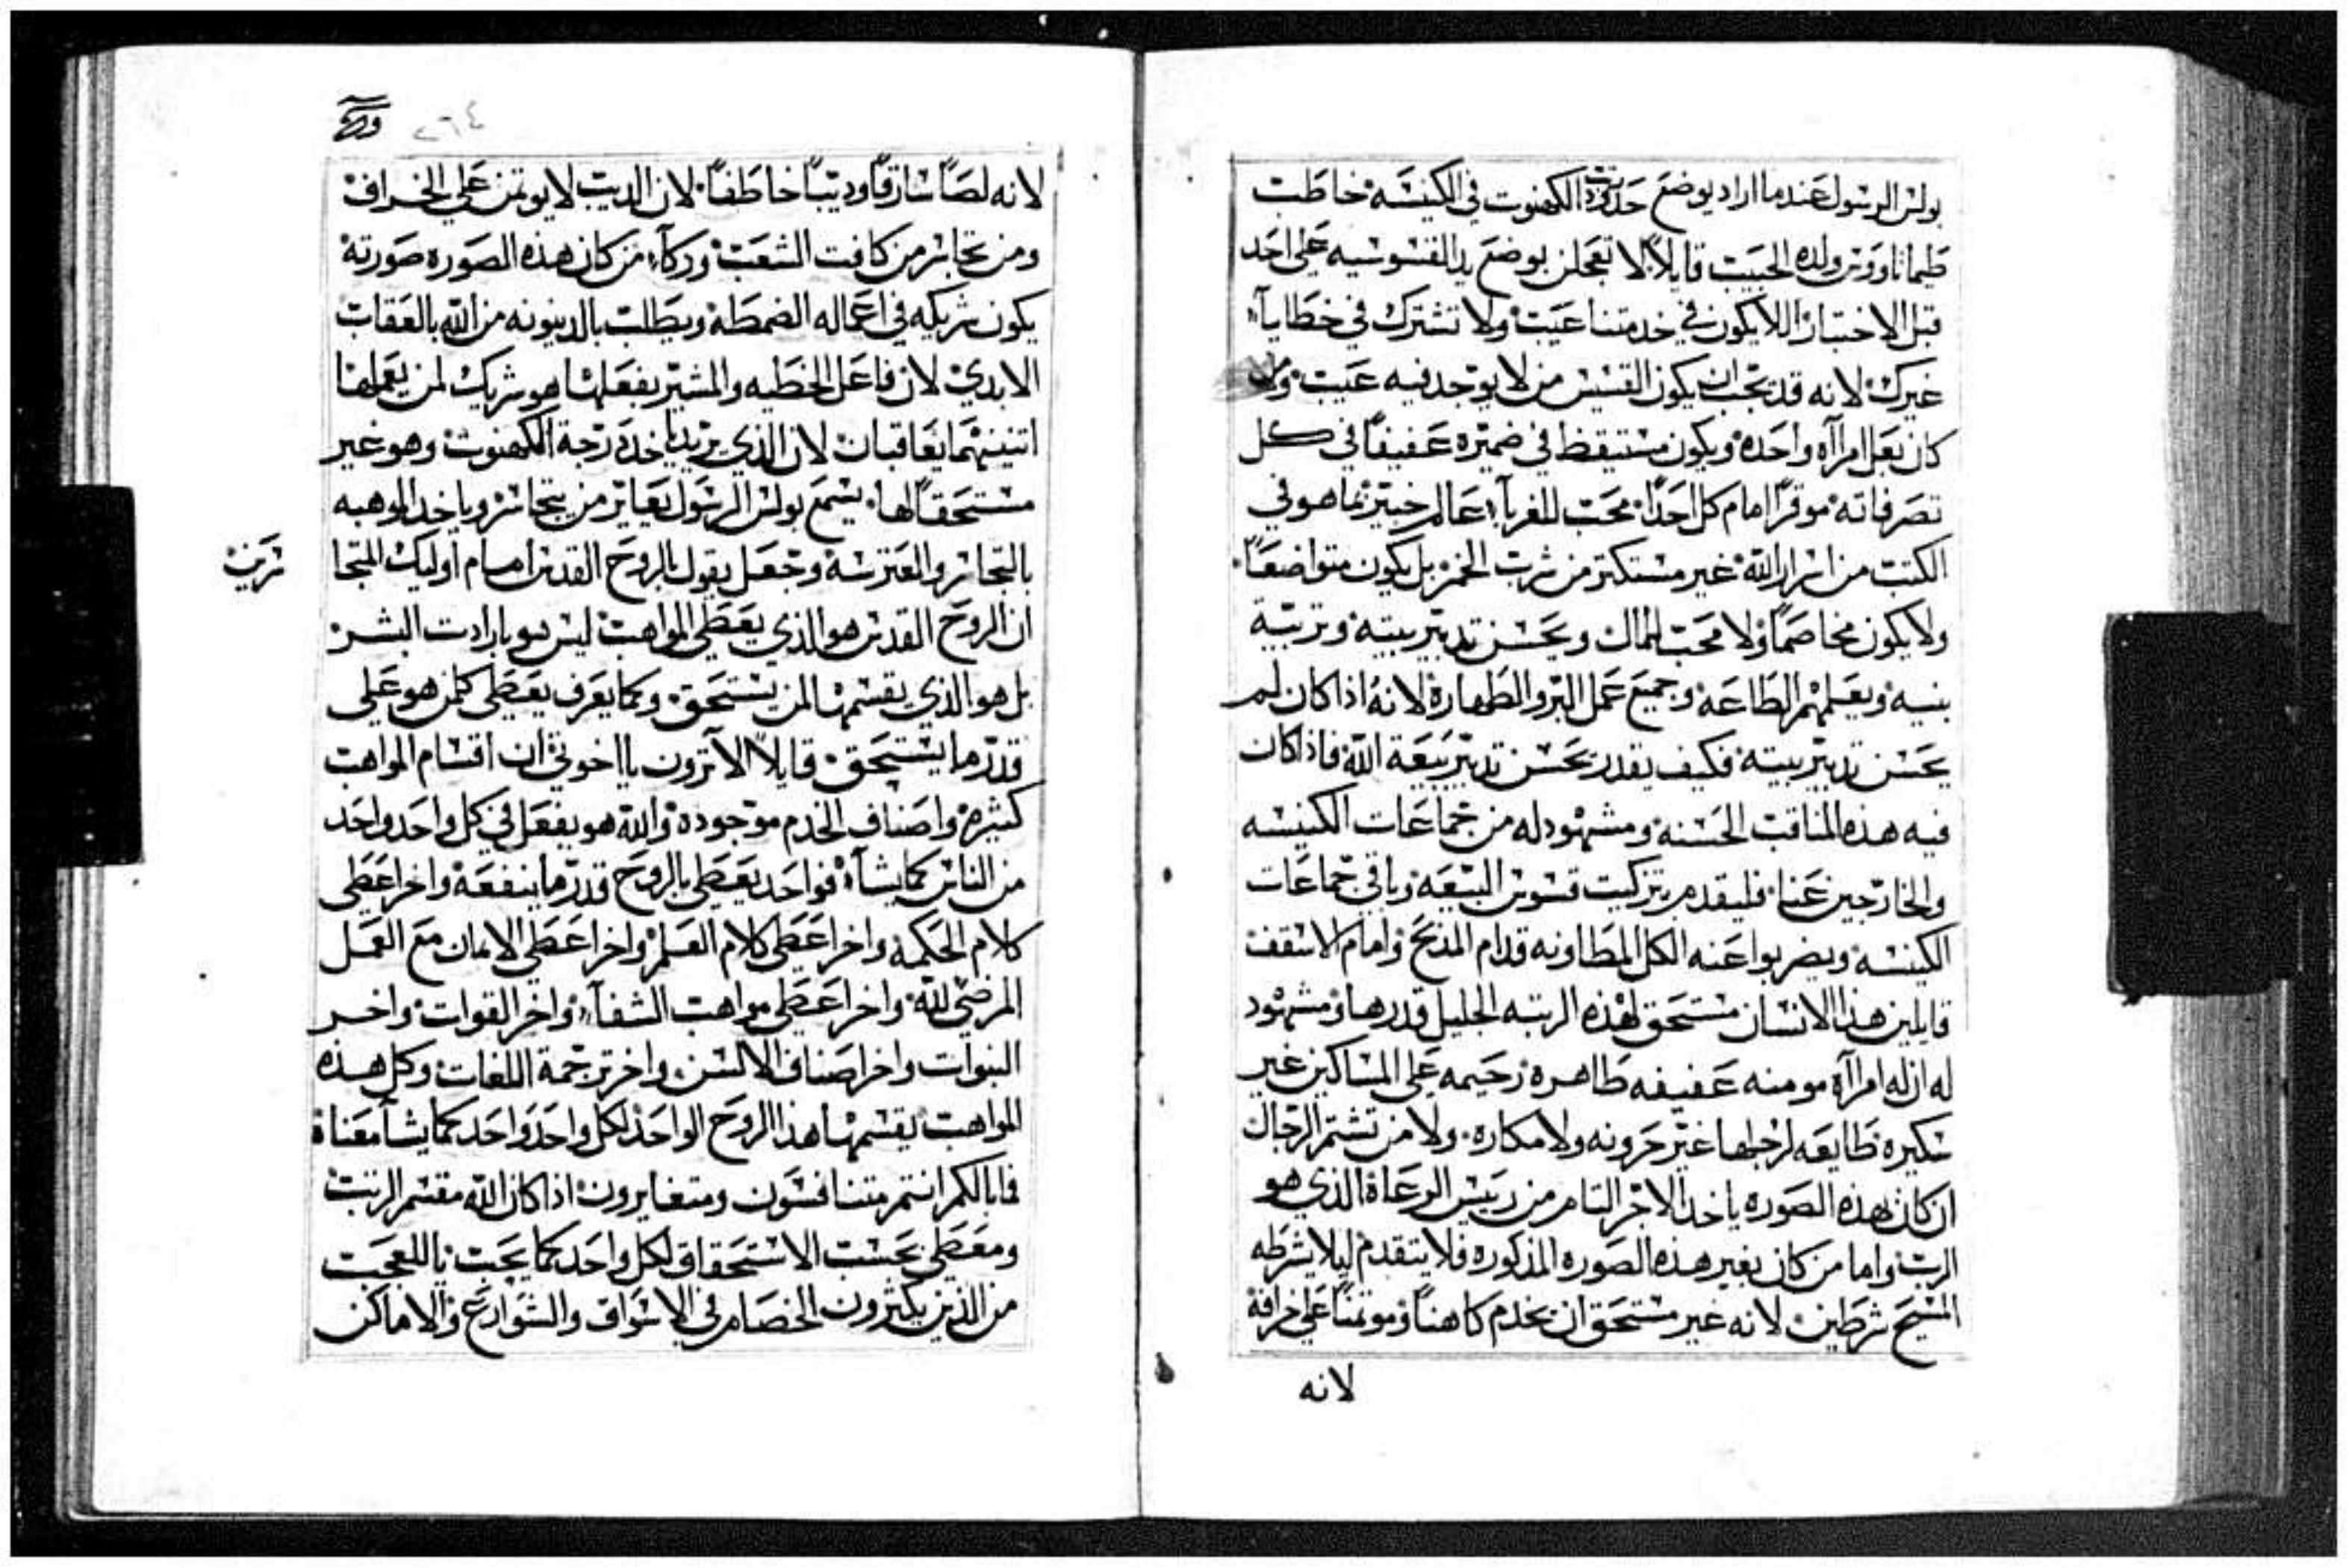 بولس الرسول عندما اراد يوضع حدود رتبت الكهنوت في الكنيسه خاطب
طيماتاووس ولده الحبيب قايلاً لا تعجلن بوضع يد القسوسيه على احد
قبل الاختبار اللا يكون في خدمتنا عيب ولا تشترك في خطايا
غيرك لانه قد يجب ان يكون القسيس من لا يوجد فيه عيب ومن
كان بعل امرااه واحده ويكون مستيقظ في ضميره عفيفاً في كل
تصرفاته موقراً امام كل احداً محب للغربآء عالم خبير بما هو في
الكتب من اسرار الله غير مستكتر من شرب الخمر بل يكون متواضعاً
ولا يكون مخاصماً ولا محب للمال ويحسن تدبير بيته وتربية
بنيه ويعلمهم الطاعه وجميع عمل البر والطهاره لانه اذا كان لم
يحسن تدبير بيته فكيف يقدر يحسن تدبير بيعة الله فاذا كان
فيه هذه المناقب الحسنه ومشهود له من جماعات الكنيسه
والخارجين عنا فليقدم بتزكيت قسوس البيعه وباقي جماعات
الكنيسه ويضربوا عنه الكل المطاونه قدام المذبح وامام الاسقف
قايلين هذا الانسان مستحق لهذه الرتبه الجليل قدرها ومشهود
له ان له امرااة مومنه عفيفه طاهره رحيمه على المساكين غير
سكيره طايعه لرجلها غير حرونه ولا مكاره ولا من تشتم الرجال
ان كان بهذه الصوره ياخد الاجر التام من رييس الرعاة الذي هو
الرب واما من كان بغير هذه الصوره المذكوره فلا يتقدم ليلا يشرطه
المسيح شرطين لانه غير مستحق ان يخدم كاهناً وموتمناً على خرافة
لانه
٢٦٤
لانه لصاً سارقاً وديباً خاطفاً لان الديب لا يوتمن على الخراف
ومن تجاسر من كافت الشعب وزكآء من كان هذه الصوره صورته
يكون شريكه في اعماله الضمطة ويطلب بالدينونه من الله بالعقاب
الابدي لان فاعل الخطيه والمشير بفعلها هو شريك لمن يعملها
اتنينهما يعاقبان لان الذي يريد ياخد درجة الكهنوت وهو غير
مستحقاً لها يسمع بولس الرسول يعاير من يتجاسر وياخد الموهبه
بالتجاسر والعترسه وجعل يقول بالروح القدس امام اوليك المتجا
سرين
ان الروح القدس هو الذي يعطي المواهب ليس هو بارادت البشر
بل هو الذي يقسمها لمن يستحق وكما يعرف يعطي كلمن هو على
قدر ما يستحق قايلاً الا ترون يا اخوتي ان اقسام المواهب
كثيره واصناف الخدم موجوده والله هو يفعل في كل واحد واحد
من الناس كما يشآء فواحد يعطي بالروح قدر ما ينفعه واخر اعطى
كلام الحكمه واخر اعطى كلام العلم واخر اعطى الايمان مع العمل
المرضي لله واخر اعطى مواهب الشفآء واخر القوات واخر
النبوات واخر اصناف الالسن واخر ترجمة اللغات وكل هذه
المواهب يقسمها هذا الروح الواحد لكل واحد واحد كما يشا معناة
فما بالكم انتم متنافسون ومتغايرون اذا كان الله مقسم الرتب
ومعطي بحسب الاستحقاق لكل واحد كما يجب يا للعجب
من الذين يكثرون الخصام في الاسواق والشوارع والاماكن